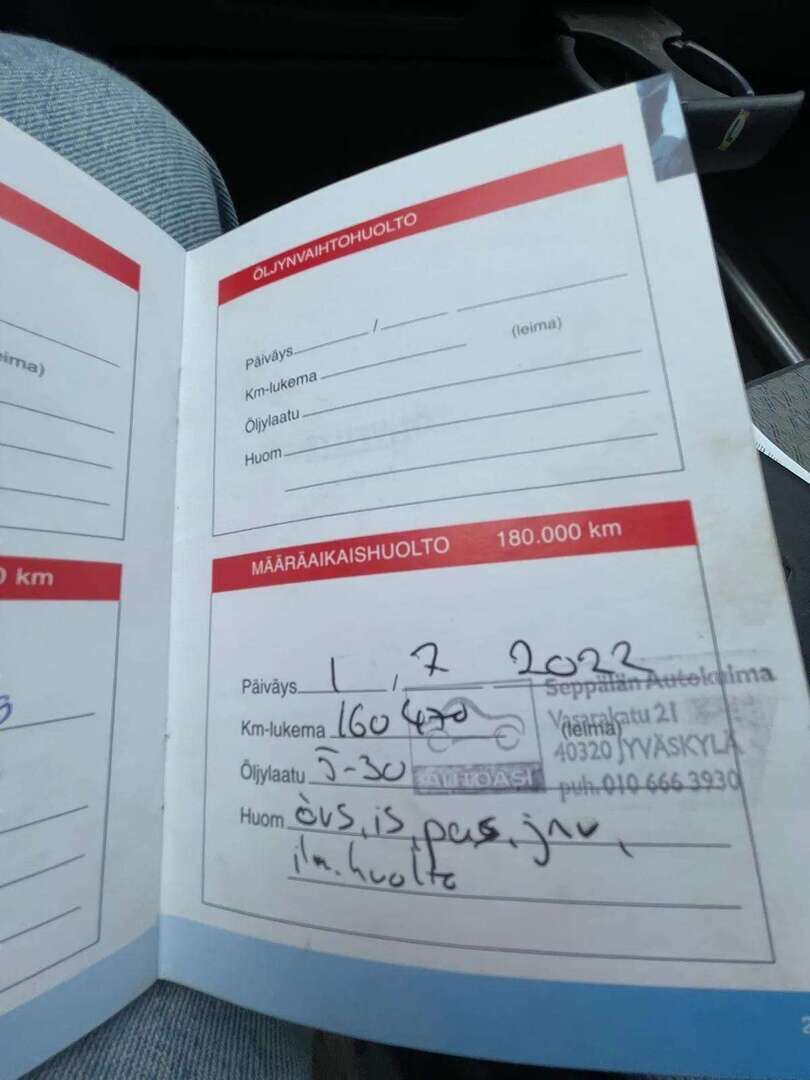 eima)
0 km
ÖLJYNVAIHTOHUOLTO
Päiväys / 
(leima)
Km-lukema
Öljylaatu
Huom
MÄÄRÄAIKAISHUOLTO 180.000 km
Päiväys 1 / 7 2022
Seppälän Autokulma
Km-lukema 160 470
Vasarakatu 21
(leima)
40320 JYVÄSKYLÄ
Öljylaatu 5-30
AUTOASI
puh. 010 666 3930
Huom övs, is, pas, jnv,
ilm. huolto
2